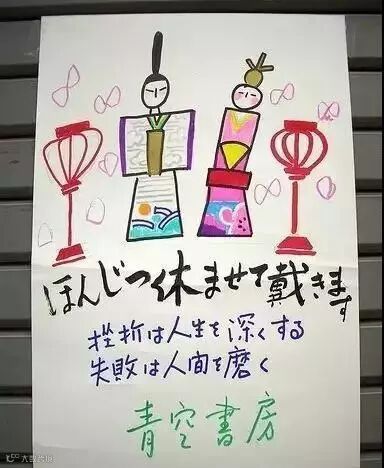 ほんじつ休ませて戴きます
挫折は人生を深くする
失敗は人間を磨く
青空書房